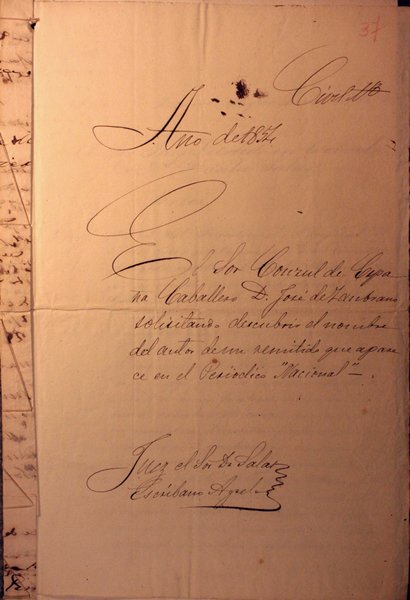 37
Civel
Año de 1874
El Sor Conzul de Espa
ña Caballero D. José de Zambrano
solicitando descubrir el nombre
del autor de un remitido que apare
ce en el Periodico "Nacional"—.
Juez el Sor Dr Salas
Escribano